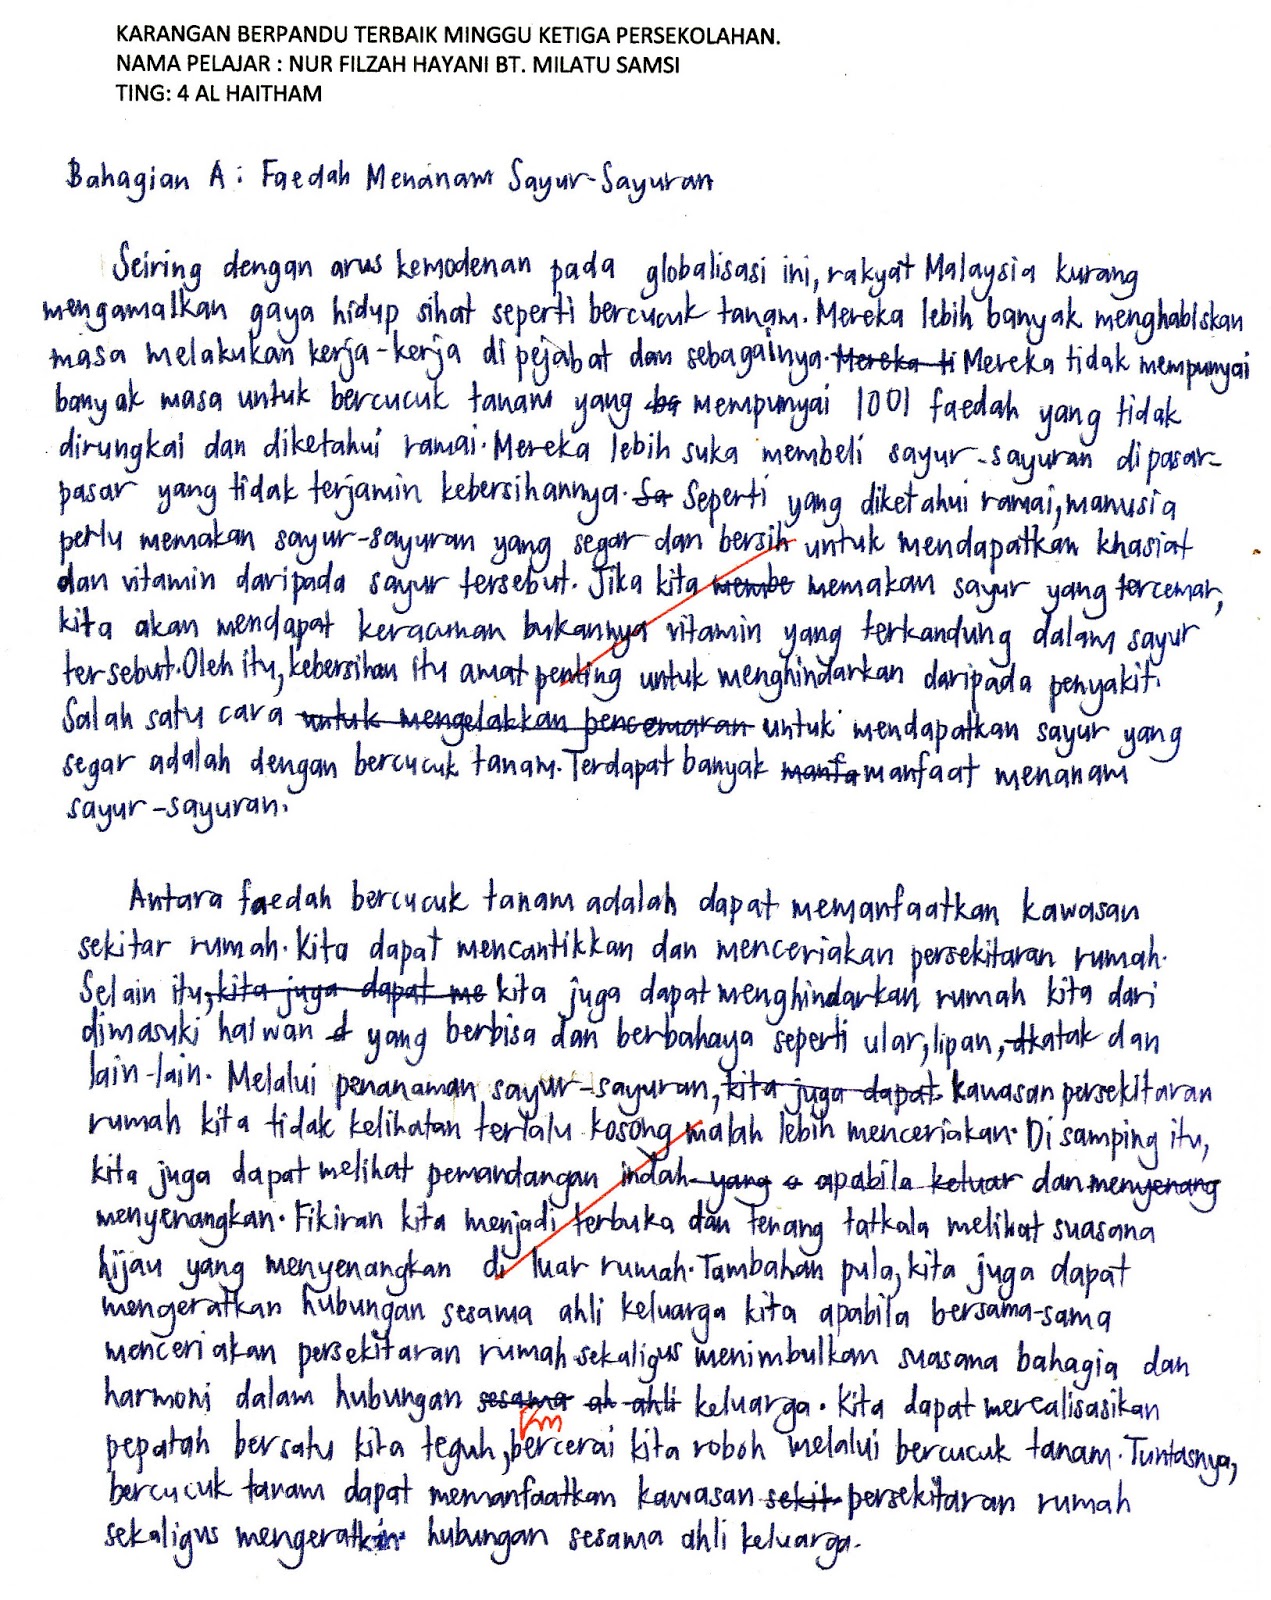 KARANGAN BERPANDU TERBAIK MINGGU KETIGA PERSEKOLAHAN.
NAMA PELAJAR : NUR FILZAH HAYANI BT. MILATU SAMSI
TING: 4 AL HAITHAM
Bahagian A : Faedah Menanam Sayur-Sayuran
Seiring dengan arus kemodenan pada globalisasi ini, rakyat Malaysia kurang
mengamalkan gaya hidup sihat seperti bercucuk tanam. Mereka lebih banyak menghabiskan
masa melakukan kerja-kerja di pejabat dan sebagainya. Mereka ti Mereka tidak mempunyai
banyak masa untuk bercucuk tanam yang ba mempunyai 1001 faedah yang tidak
dirungkai dan diketahui ramai. Mereka lebih suka membeli sayur-sayuran di pasar-
pasar yang tidak terjamin kebersihannya. Sa Seperti yang diketahui ramai, manusia
perlu memakan sayur-sayuran yang segar dan bersih untuk mendapatkan khasiat
dan vitamin daripada sayur tersebut. Jika kita membe memakan sayur yang tercemar,
kita akan mendapat keracunan bukannya vitamin yang terkandung dalam sayur
tersebut. Oleh itu, kebersihan itu amat penting untuk menghindarkan daripada penyakit.
Salah satu cara untuk mengelakkan pencemaran untuk mendapatkan sayur yang
segar adalah dengan bercucuk tanam. Terdapat banyak manfa manfaat menanam
sayur-sayuran.
Antara faedah bercucuk tanam adalah dapat memanfaatkan kawasan
sekitar rumah. Kita dapat mencantikkan dan menceriakan persekitaran rumah.
Selain itu, kita juga dapat me kita juga dapat menghindarkan rumah kita dari
dimasuki haiwan d yang berbisa dan berbahaya seperti ular, lipan, katak dan
lain-lain. Melalui penanaman sayur-sayuran, kita juga dapat kawasan persekitaran
rumah kita tidak kelihatan terlalu kosong malah lebih menceriakan. Di samping itu,
kita juga dapat melihat pemandangan indah yang apabila keluar dan menyenang
menyenangkan. Fikiran kita menjadi terbuka dan tenang tatkala melihat suasana
hijau yang menyenangkan di luar rumah. Tambahan pula, kita juga dapat
mengeratkan hubungan sesama ahli keluarga kita apabila bersama-sama
menceriakan persekitaran rumah sekaligus menimbulkan suasana bahagia dan
harmoni dalam hubungan sesama ah ahli keluarga. Kita dapat merealisasikan
pepatah bersatu kita teguh, bercerai kita roboh melalui bercucuk tanam. Tuntasnya,
bercucuk tanam dapat memanfaatkan kawasan sekit persekitaran rumah
sekaligus mengeratkan hubungan sesama ahli keluarga.